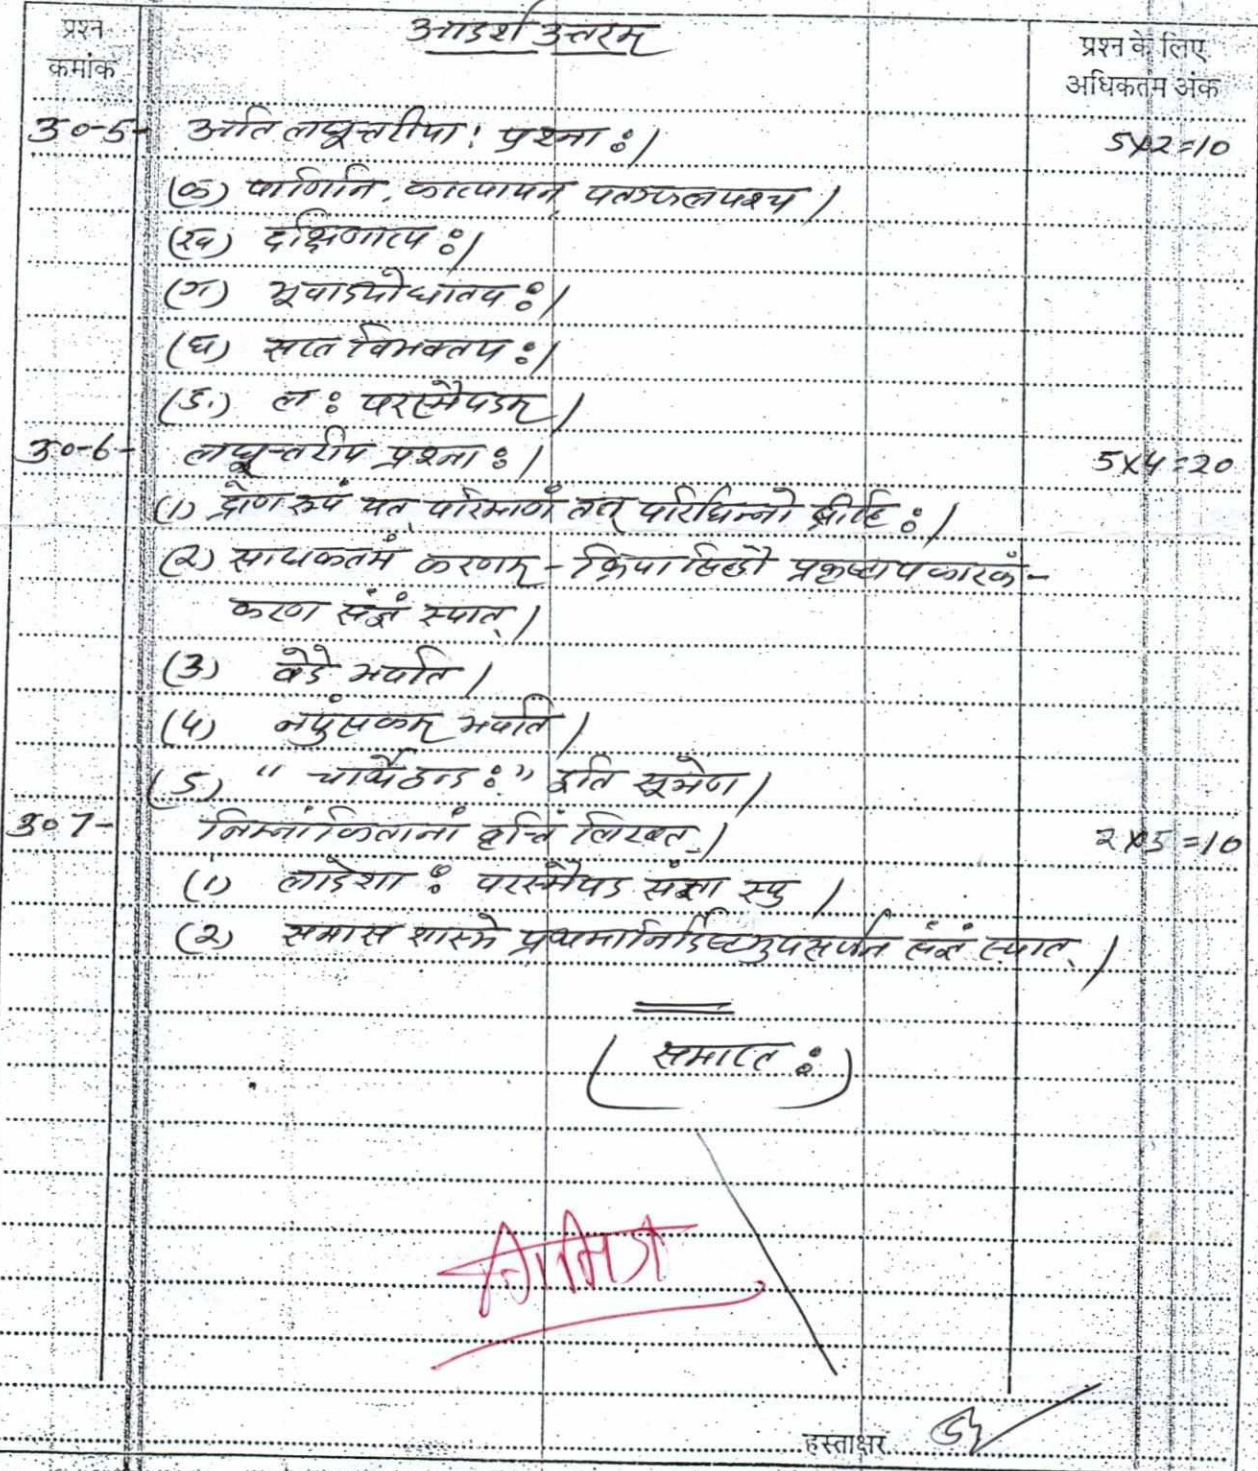 प्रश्न
क्रमांक
आदर्श उत्तरम्
प्रश्न के लिए
अधिकतम अंक
उ०-5- अति लघूत्तरीया: प्रश्ना:। 5x2=10
(क) पाणिनि, कात्यायन, पतञ्जलयश्च।
(ख) दक्षिणात्य:।
(ग) भूवादयोधातव:।
(घ) सप्त विभक्तय:।
(ङ.) ल: परस्मैपदम्।
उ०-6- लघूत्तरीय प्रश्ना:। 5x4=20
(1) द्रोण रूपं यत् परिमाणं तत् परिछिन्नो व्रीहि:।
(2) साधकतमं करणम् - क्रिया सिद्धौ प्रकृष्टोपकारकं-
करण संज्ञं स्यात्।
(3) भवति।
(4) नपुंसकम् भवति।
(5) "चार्थेद्वन्द्व:" इति सूत्रेण।
उ० 7- निम्नांकितानां वृत्तिं लिखत्। 2x5=10
(1) लादेशा: परस्मैपद संज्ञा स्यु।
(2) समास शास्त्रे प्रथमानिर्दिष्टमुपसर्जन संज्ञं स्यात्।
(समाप्त:)
हस्ताक्षर